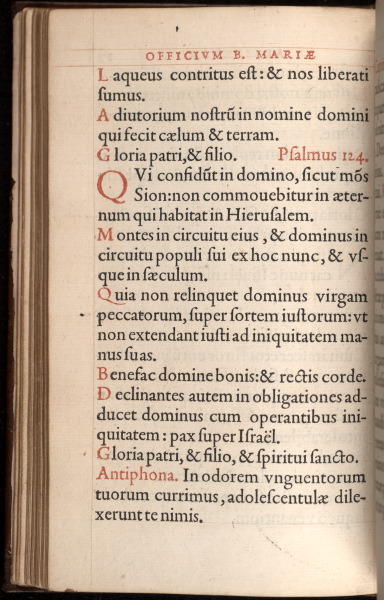 OFFICIVM B. MARIÆ
Laqueus contritus eſt: & nos liberati
ſumus.
Adiutorium noſtrũ in nomine domini
qui fecit cælum & terram.
Gloria patri, & filio. Pſalmus 124.
QVi confidũt in domino, ſicut mõs
Sion: non commouebitur in æter-
num qui habitat in Hieruſalem.
Montes in circuitu eius, & dominus in
circuitu populi ſui ex hoc nunc, & vſ-
que in ſæculum.
Quia non relinquet dominus virgam
peccatorum, ſuper ſortem iuſtorum: vt
non extendant iuſti ad iniquitatem ma-
nus ſuas.
Benefac domine bonis: & rectis corde.
Declinantes autem in obligationes ad-
ducet dominus cum operantibus ini-
quitatem: pax ſuper Iſraël.
Gloria patri, & filio, & ſpiritui ſancto.
Antiphona. In odorem vnguentorum
tuorum currimus, adoleſcentulæ dile-
xerunt te nimis.